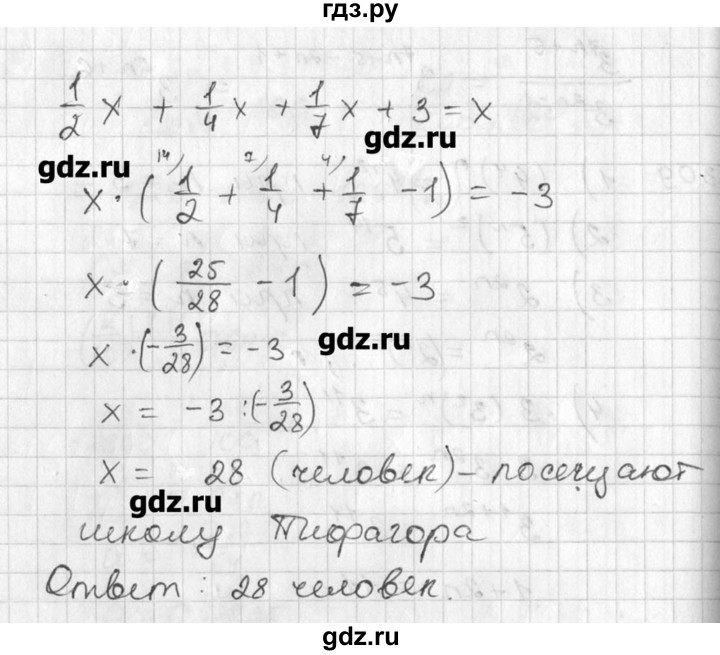 гдз.ру
1/2 x + 1/4 x + 1/7 x + 3 = x
gdz.ru
gdz.ru
14) 7) 4)
x · (1/2 + 1/4 + 1/7 - 1) = -3
x · (25/28 - 1) = -3
gdz.ru
x · (-3/28) = -3
x = -3 : (-3/28)
x = 28 (человек) - посещают
gdz.ru
школу Пифагора
Ответ: 28 человек.
gdz.ru